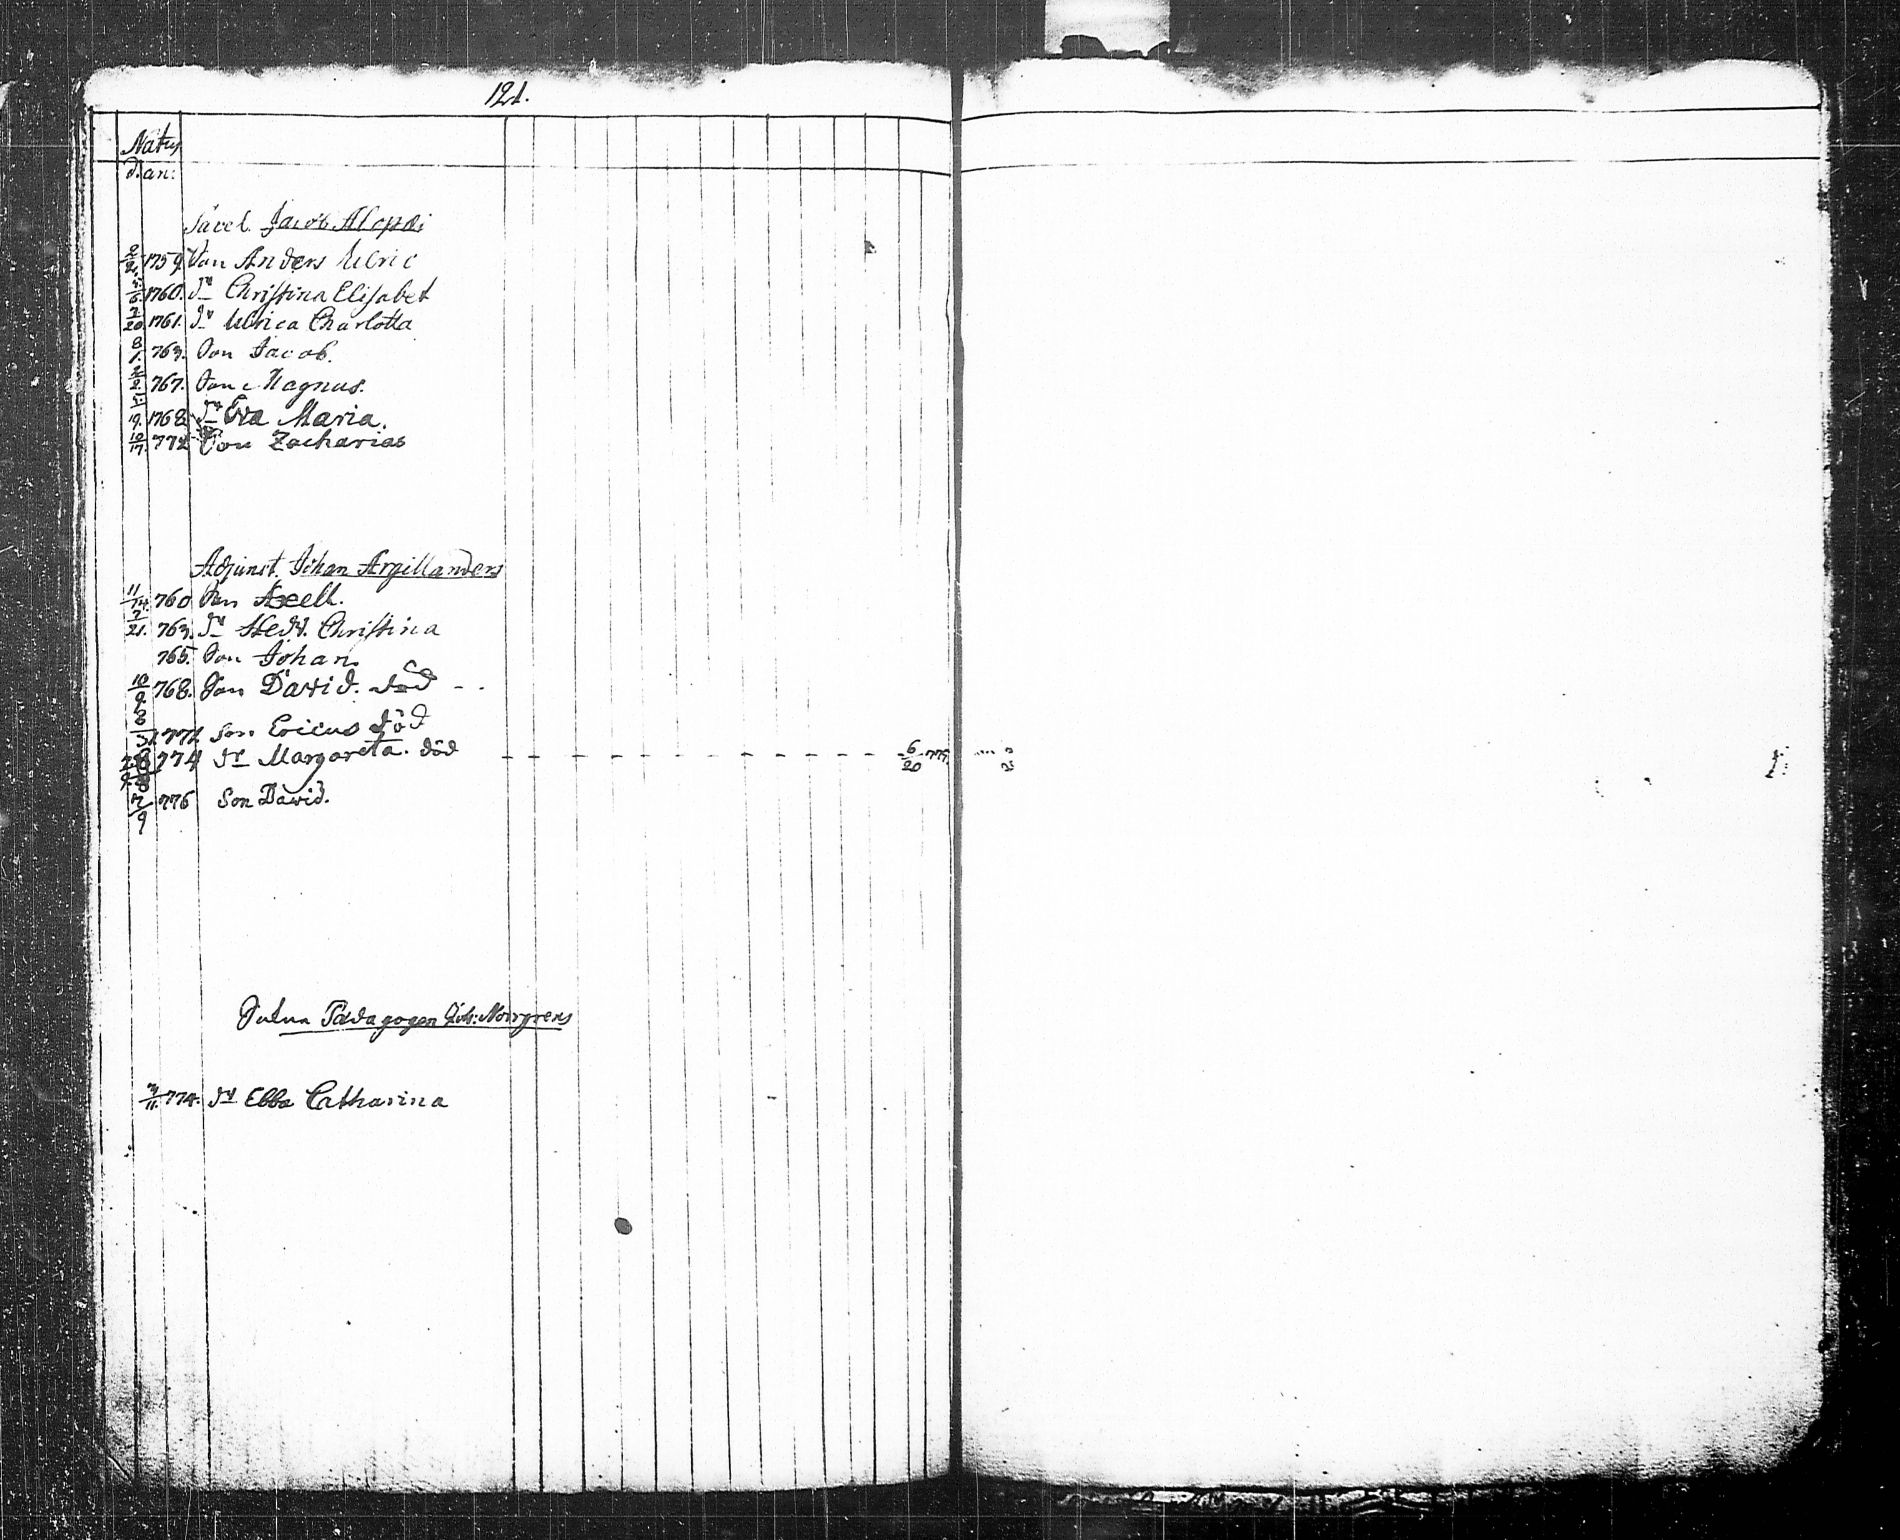 121.
Natus
d. an:
Sacel. Jacob Alopæi
2/21 1759. Son Anders Ulric
4/6. 1760. Dr Christina Elisabet
7/20. 1761. Dr Ulrica Charlotta
8/1. 763. Son Jacob.
2/2. 767. Son Magnus.
19. 1768. Dr Eva Maria.
10/17. 772 Son Zacharias
Adjunct. Johan Argillanders
11/14. 760 Son Axell.
7/21. 763. Dr Hedv. Christina
765. Son Johan
10/9. 768. Son David. död
771 Son Ericus död
774 Dr Margareta. död 6/20 777.
7/9 776 Son David.
Pædagogen Joh: Norrgrens
3/11. 774. Dr Ebba Catharina